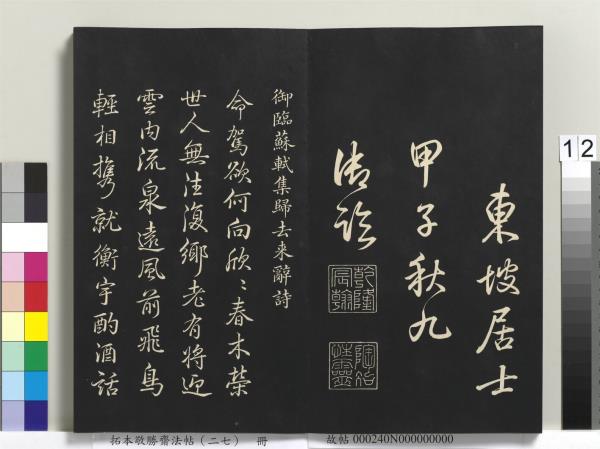 東坡居士
甲子秋九
御臨
乾隆宸翰
陶冶性靈
御臨蘇軾集歸去来辭詩
命駕欲何向欣〻春木榮
世人無往復鄉老有將迎
雲内流泉遠風前飛鳥
輕相携就衡宇酌酒話
12
拓本敬勝齋法帖（二七） 冊
故帖 000240N000000000